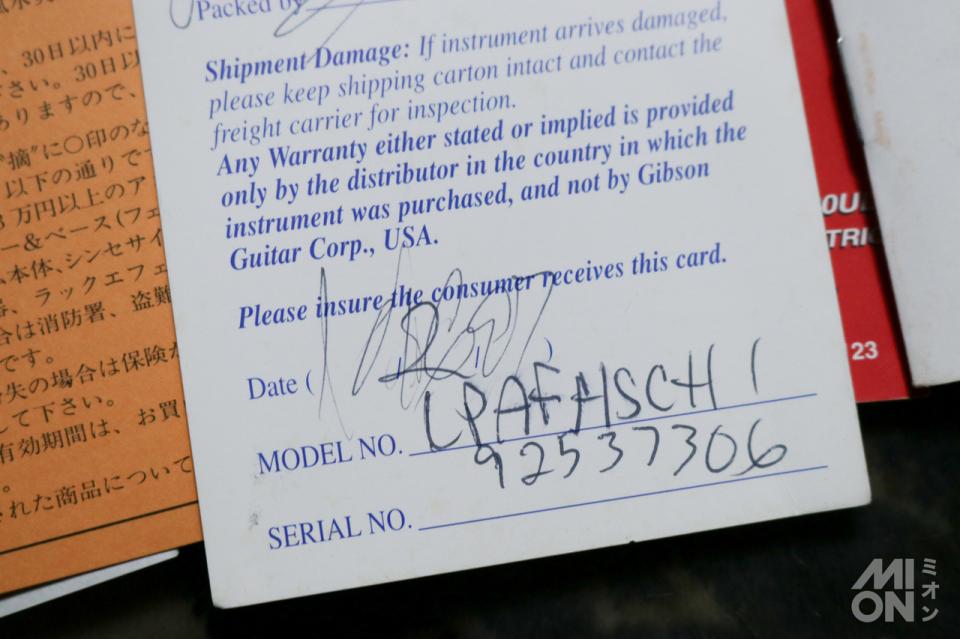 Packed by
Shipment Damage: If instrument arrives damaged,
please keep shipping carton intact and contact the
freight carrier for inspection.
Any Warranty either stated or implied is provided
only by the distributor in the country in which the
instrument was purchased, and not by Gibson
Guitar Corp., USA.
Please insure the consumer receives this card.
Date ( )
MODEL NO. LPAFHSCH1
92537306
SERIAL NO.
、30日以内に
下さい。30日以
ありますので、
摘"に○印のな
以下の通りで
万円以上のア
ー&ベース(フェ
本体、シンセサイ
、ラックエフェ
合は消防署、盗難
です。
失の場合は保険
して下さい。
有効期間は、お買
された商品について
OU
TRIC
23
MION
ミオン